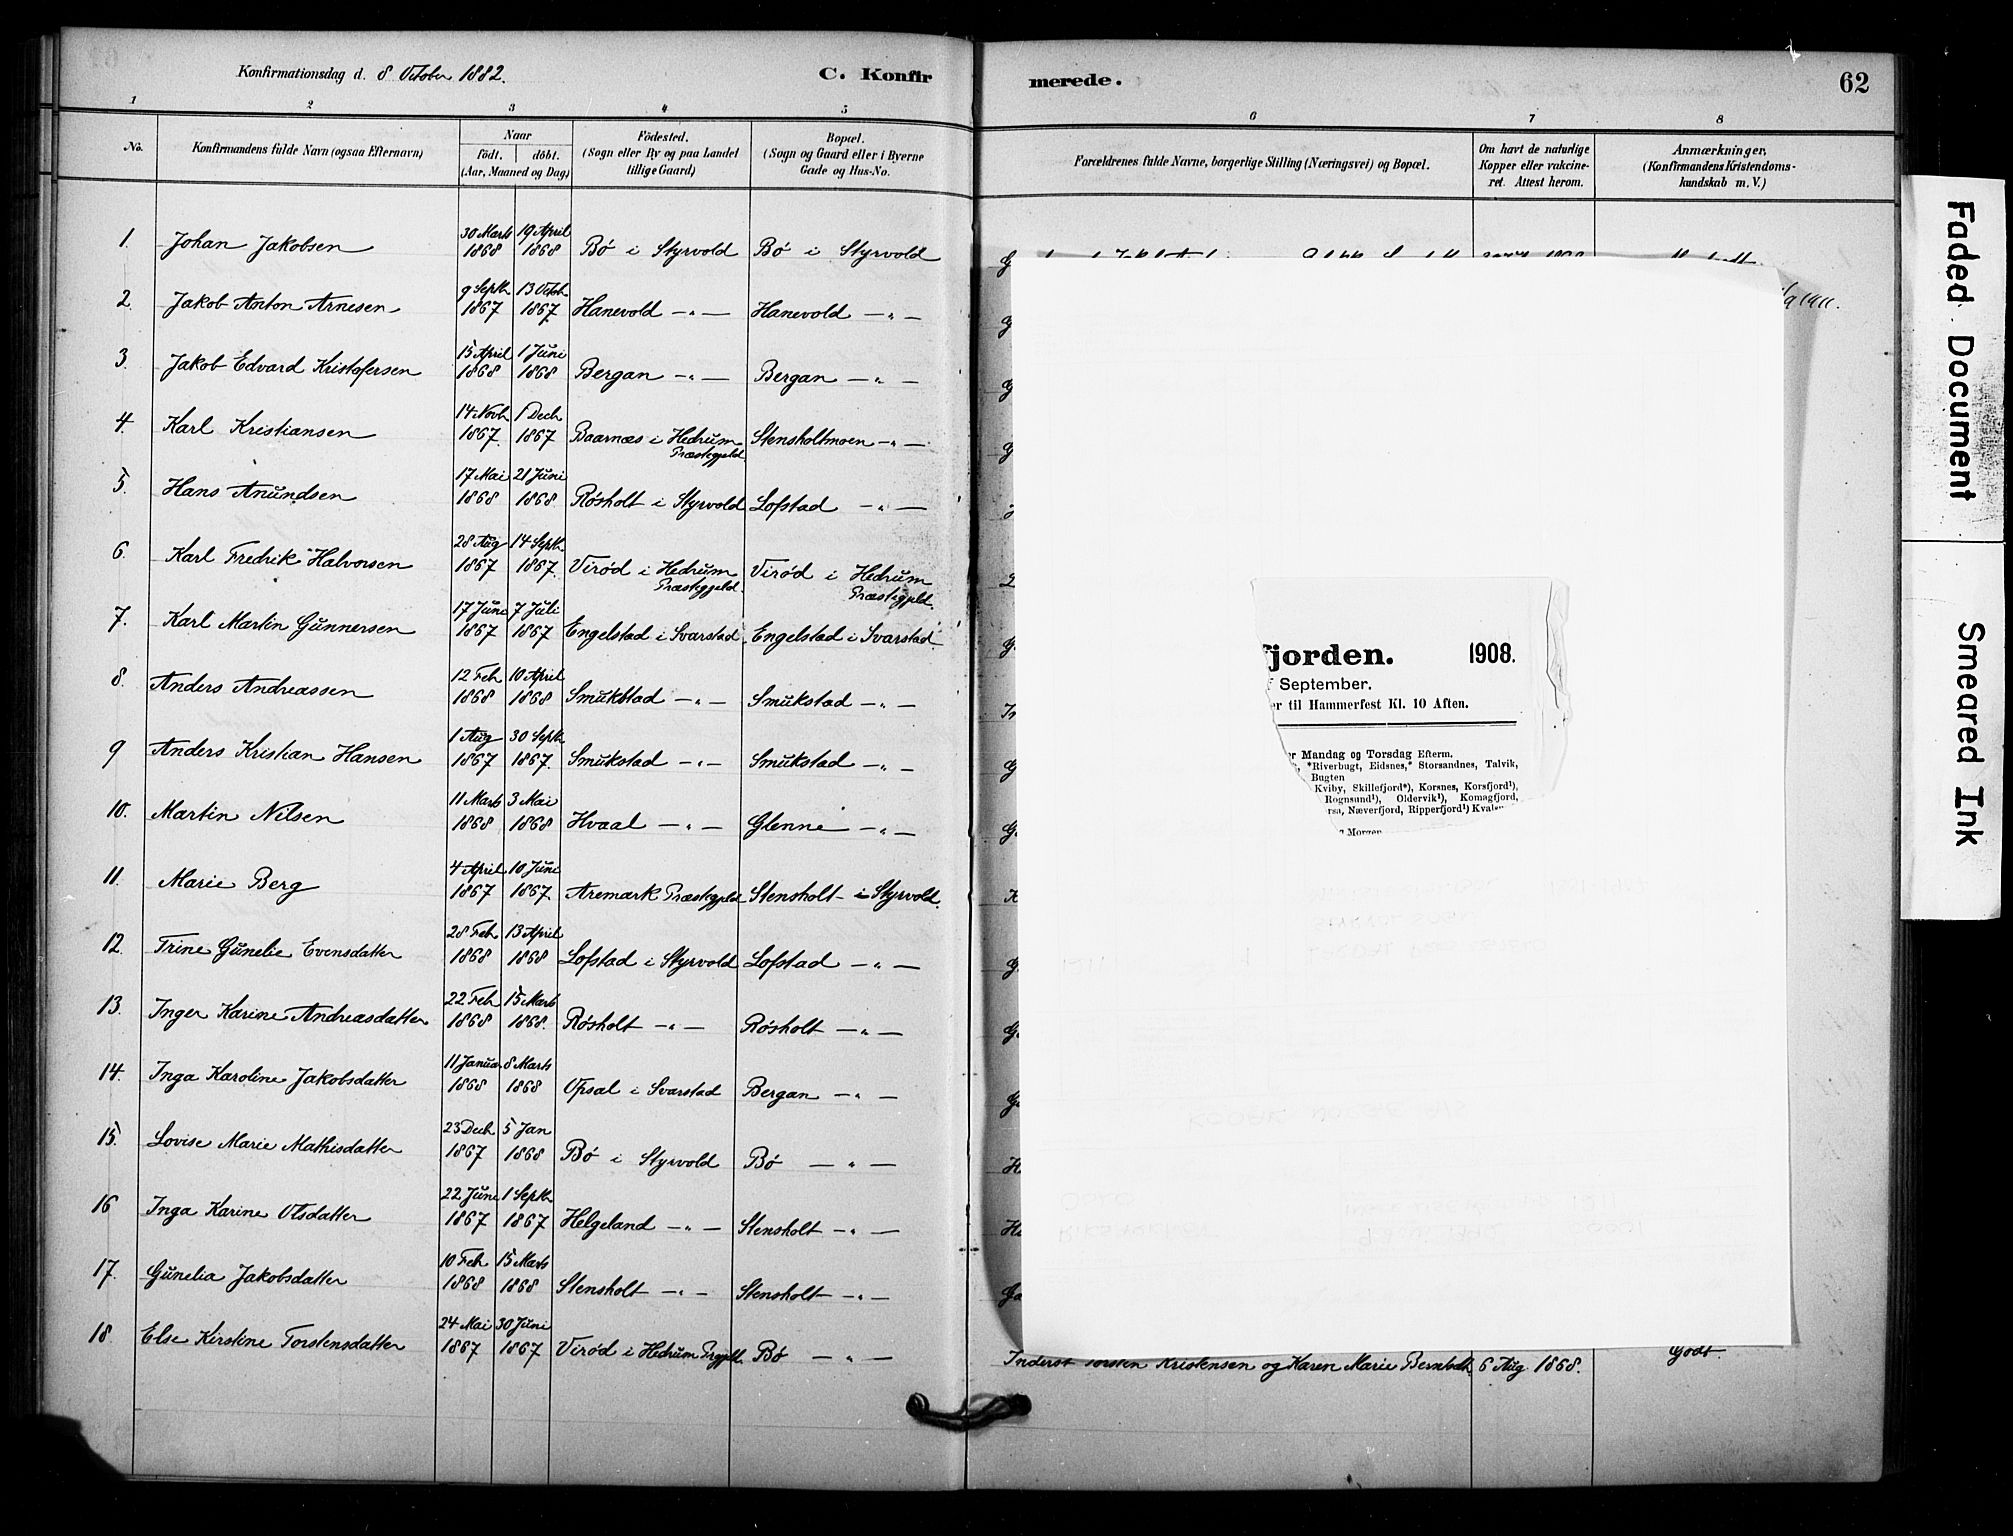 Konfirmationsdag d. 8 October 1882.
C. Konfir
merede.
62
1 2 3 4 5 6 7 8
No.
Konfirmandens fulde Navn (ogsaa Efternavn)
Naar
födt. döbt.
(Aar, Maaned og Dag)
Födested.
(Sogn eller By og paa Landet
tillige Gaard)
Bopæl.
(Sogn og Gaard eller i Byerne
Gade og Hus-No.
Forældrenes fulde Navne, borgerlige Stilling (Næringsvei) og Bopæl.
Om havt de naturlige
Kopper eller vakcine-
ret. Attest herom.
Anmærkninger,
(Konfirmandens Kristendoms-
kundskab m. V.)
1. Johan Jakobsen 30 Marts 1868 19 April 1868 Bö i Styrvold Bö i Styrvold
2 Jakob Anton Arnesen 9 Septb. 1867 13 Octob. 1867. Hanevold —"— Hanevold —"—
3 Jakob Edvard Kristofersen 15 April 1868 1 Juni 1868 Bergan —"— Bergan —"—
4. Karl Kristiansen 14 Novb. 1867. 1 Decb. 1867 Baarnæs i Hedrum Præstegjeld. Stensholtmoen —"—
5. Hans Anundsen 17 Mai 1868 21 Juni 1868. Rösholt i Styrvold Lofstad —"—
6. Karl Fredrik Halvorsen 28 Aug 1867 14 Septb. 1867. Viröd i Hedrum Præstegjeld. Viröd i Hedrum Præstegjeld.
7. Karl Martin Gunnersen 17 Juni 1867 7 Juli 1867 Engelstad i Svarstad Engelstad i Svarstad
8. Anders Andreassen 12 Feb. 1868 10 April 1868 Smukstad —"— Smukstad —"—
9 Anders Kristian Hansen 1 Aug 1867 30 Septb. 1867. Smukstad —"— Smukstad —"—
10. Martin Nilsen 11 Marts 1868 3 Mai 1868 Hvaal —"— Glenne —"—
11. Marie Berg 4 April 1867 10 Juni 1867 Aremark Præstegjeld Stensholt i Styrvold.
12. Trine Gunelie Evensdatter 28 Feb. 1868 13 April 1868 Lofstad i Styrvold Lofstad —"—
13. Inger Karine Andreasdatter 22 Feb 1868 15 Marts 1868. Rösholt —"— Rösholt —"—
14. Inga Karoline Jakobsdatter 11 Januar 1868 8 Marts 1868 Opsal i Svarstad Bergan —"—
15. Lovise Marie Mathisdatter 23 Decb. 1867 5 Jan 1868 Bö i Styrvold Bö —"—
16 Inga Karine Olsdatter 22 Juni 1867 1 Septb. 1867 Helgeland —"— Stensholt —"—
17. Gunelia Jakobsdatter 10 Feb. 1868 15 Marts 1868 Stensholt —"— Stensholt —"—
18. Else Kirstine Torstensdatter 24 Mai 1867 30 Juni 1867 Viröd i Hedrum Prgjeld. Bö —"— Inderst Torsten Kristensen og Karen Marie Berntsdt. 6 Aug 1868. Godt.
1911.
fjorden. 1908.
September.
til Hammerfest Kl. 10 Aften.
Mandag og Torsdag Efterm.
*Riverbugt, Eidsnes,* Storsandnes, Talvik,
Bugten
Kviby, Skillefjord*), Korsnes, Korsfjord¹),
Rognsund¹), Oldervik¹), Komagfjord,
Næverfjord, Ripperfjord¹)
Morgen
Faded Document
Smeared Ink